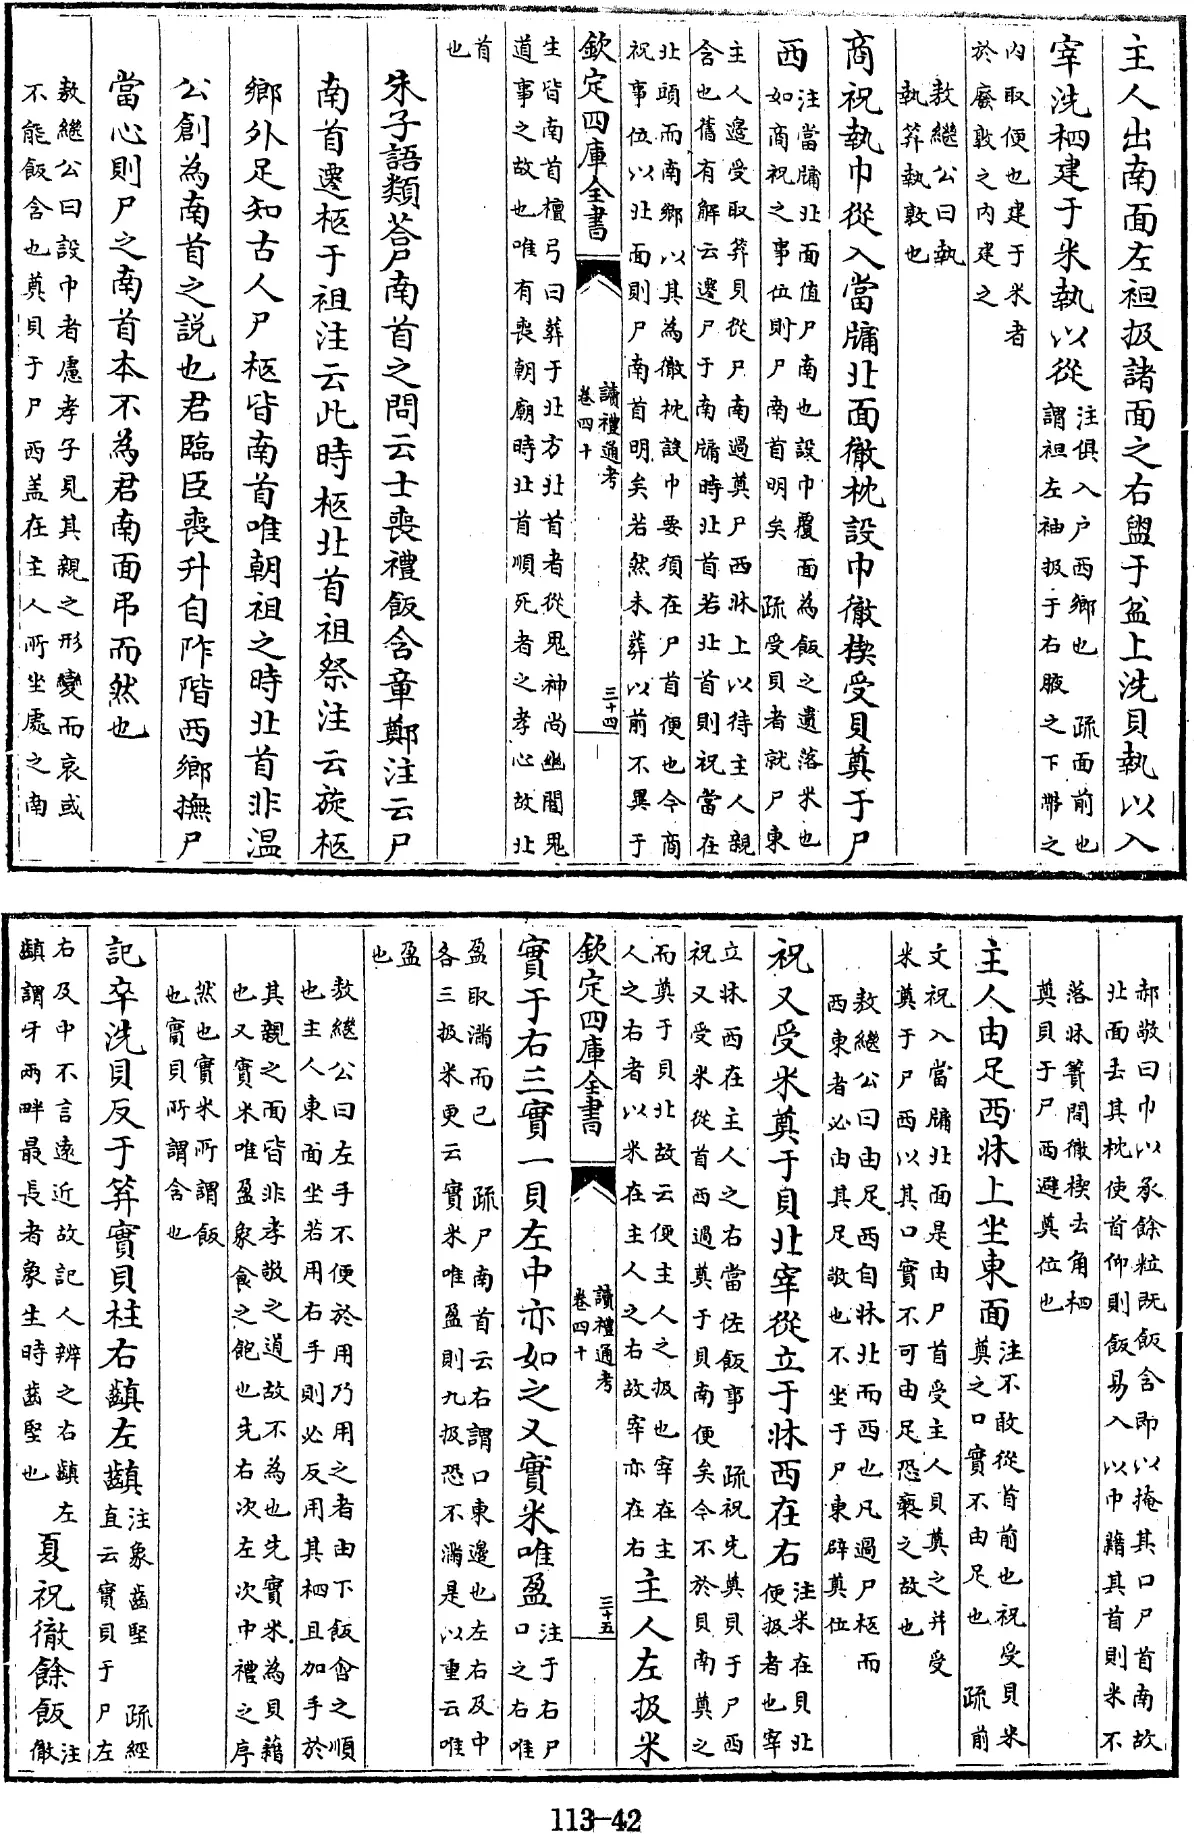 主人出南面左袒扱諸面之右盥于盆上洗貝執以入
宰洗柶建于米執以從注俱入户西鄉也 疏面前也
謂袒左袖扱于右腋之下帶之
内取便也建于米者
於廢敦之内建之
敖繼公曰執
執笲執敦也
商祝執巾從入當牖北面徹枕設巾徹楔受貝奠于尸
西注當牖北面值尸南也設巾覆面為飯之遺落米也
如商祝之事位則尸南首明矣 疏受貝者就尸東
主人邊受取笲貝從尸南過奠尸西牀上以待主人親
含也舊有解云遷尸于南牖時北首若北首則祝當在
北頭而南鄉以其為徹枕設巾要須在尸首便也今商
祝事位以北面則尸南首明矣若然未葬以前不異于
欽定四庫全書
讀禮通考
卷四十
三十四
生皆南首檀弓曰葬于北方北首者從鬼神尚幽闇鬼
道事之故也唯有喪朝廟時北首順死者之孝心故北
首
也
朱子語類荅尸南首之問云士喪禮飯含章鄭注云尸
南首遷柩于祖注云此時柩北首祖祭注云旋柩
鄉外足知古人尸柩皆南首唯朝祖之時北首非温
公創為南首之説也君臨臣喪升自阼階西鄉撫尸
當心則尸之南首本不為君南面弔而然也
敖繼公曰設巾者慮孝子見其親之形變而哀或
不能飯含也奠貝于尸西盖在主人所坐處之南
郝敬曰巾以承餘粒既飯含即以掩其口尸首南故
北面去其枕使首仰則飯易入以巾藉其首則米不
落牀簀間徹楔去角柶
奠貝于尸西避奠位也
主人由足西牀上坐東面注不敢從首前也祝受貝米
奠之口實不由足也 疏前
文祝入當牖北面是由尸首受主人貝奠之并受
米奠于尸西以其口實不可由足恐褻之故也
敖繼公曰由足西自牀北而西也凡過尸柩而
西東者必由其足敬也不坐于尸東辟奠位
祝又受米奠于貝北宰從立于牀西在右注米在貝北
便扱者也宰
立牀西在主人之右當佐飯事 疏祝先奠貝于尸西
祝又受米從首西過奠于貝南便矣今不於貝南奠之
而奠于貝北故云便主人之扱也宰在主
人之右者以米在主人之右故宰亦在右主人左扱米
欽定四庫全書
讀禮通考
卷四十
三十五
實于右三實一貝左中亦如之又實米唯盈注于右尸
口之右唯
盈取滿而已 疏尸南首云右謂口東邊也左右及中
各三扱米更云實米唯盈則九扱恐不滿是以重云唯
盈
也
敖繼公曰左手不便於用乃用之者由下飯含之順
也主人東面坐若用右手則必反用其柶且加手於
其親之面皆非孝敬之道故不為也先實米為貝藉
也又實米唯盈象食之飽也先右次左次中禮之序
然也實米所謂飯
也實貝所謂含也
記卒洗貝反于笲實貝柱右齻左齻注象齒堅 疏經
直云實貝于尸左
右及中不言遠近故記人辨之右齻左
齻謂牙兩畔最長者象生時齒堅也夏祝徹餘飯注
徹
113-42